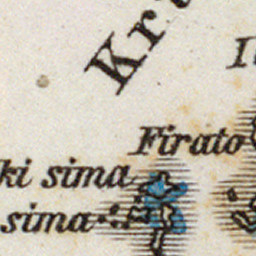 Kr
Firato
ki sima
sima